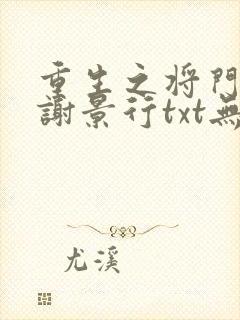 重生之将門
謝景行txt無
尤溪